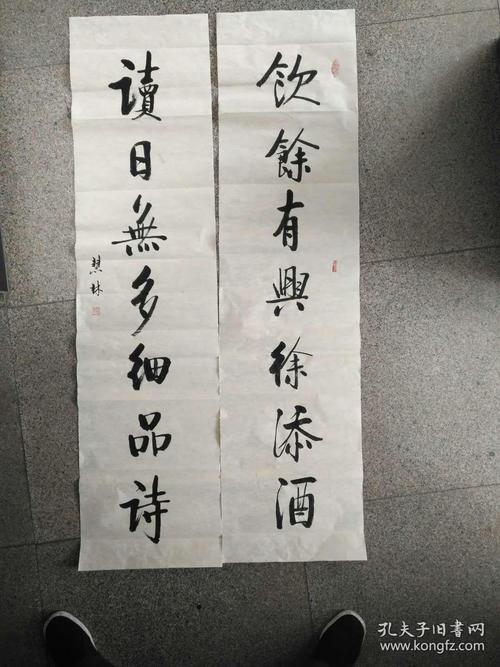 飲餘有興徐添酒
讀日無多細品詩
慧林
孔夫子旧书网
www.kongfz.com